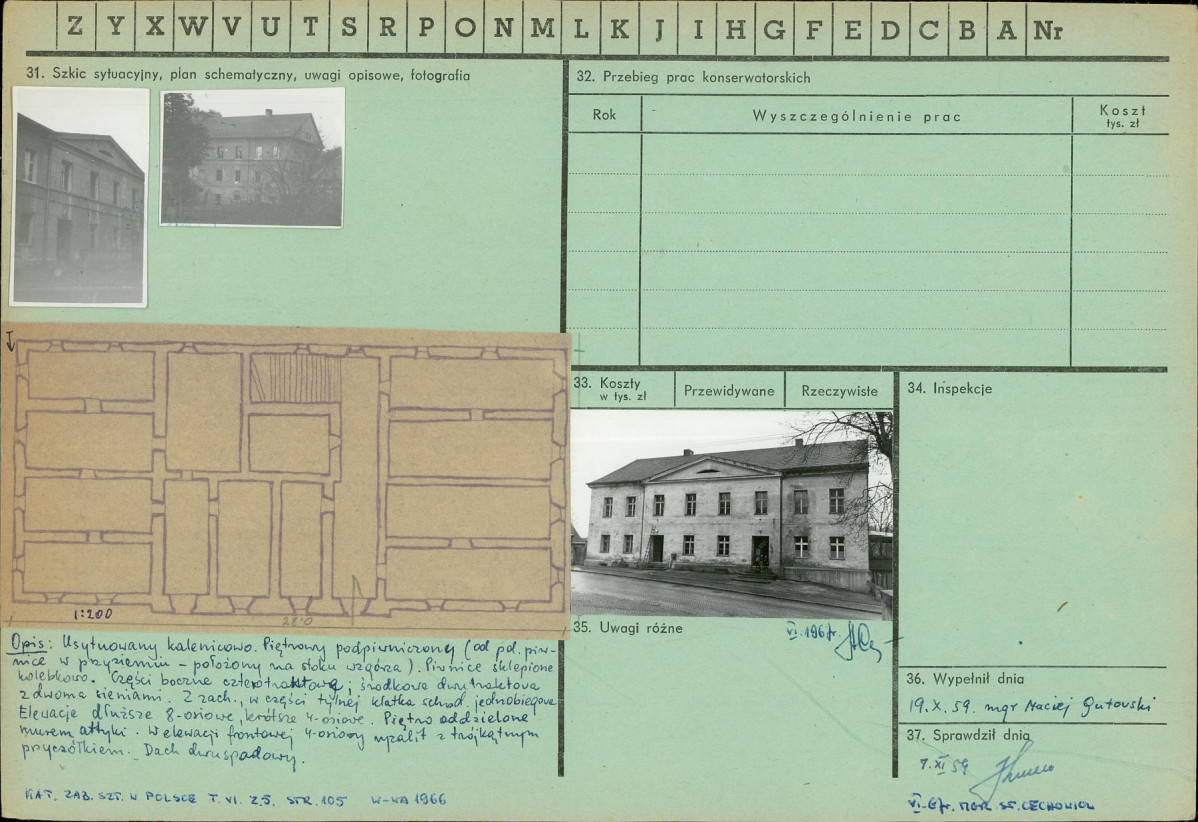 Z Y X W V U T S R P O N M L K J I H G F E D C B A Nr
31. Szkic sytuacyjny, plan schematyczny, uwagi opisowe, fotografia
1:200
28'0
Opis: Usytuowany kalenicowo. Piętrowy podpiwniczony (od pd. piw-
nice w przyziemiu – położony na stoku wzgórza). Piwnice sklepione
kolebkowo. Części boczne czterotraktowe; środkowa dwutraktowa
z dwoma sieniami. Z zach., w części tylnej klatka schod. jednobiegowa
Elewacje dłuższe 8-osiowe, krótsze 4-osiowe. Piętro oddzielone
murem attyki. W elewacji frontowej 4-osiowy ryzalit z trójkątnym
przyczółkiem. Dach dwuspadowy.
KAT. ZAB. SZT. W POLSCE T. VI. Z.5. STR. 105 W-WA 1966
32. Przebieg prac konserwatorskich
Rok
Wyszczególnienie prac
Koszt
tys. zł
33. Koszty
w tys. zł
Przewidywane
Rzeczywiste
34. Inspekcje
35. Uwagi różne
VI. 1967r.
36. Wypełnił dnia
19. X. 59. mgr Maciej Gutowski
37. Sprawdził dnia
7. XI 59
VI-67r. MGR ST. CECHOWICZ